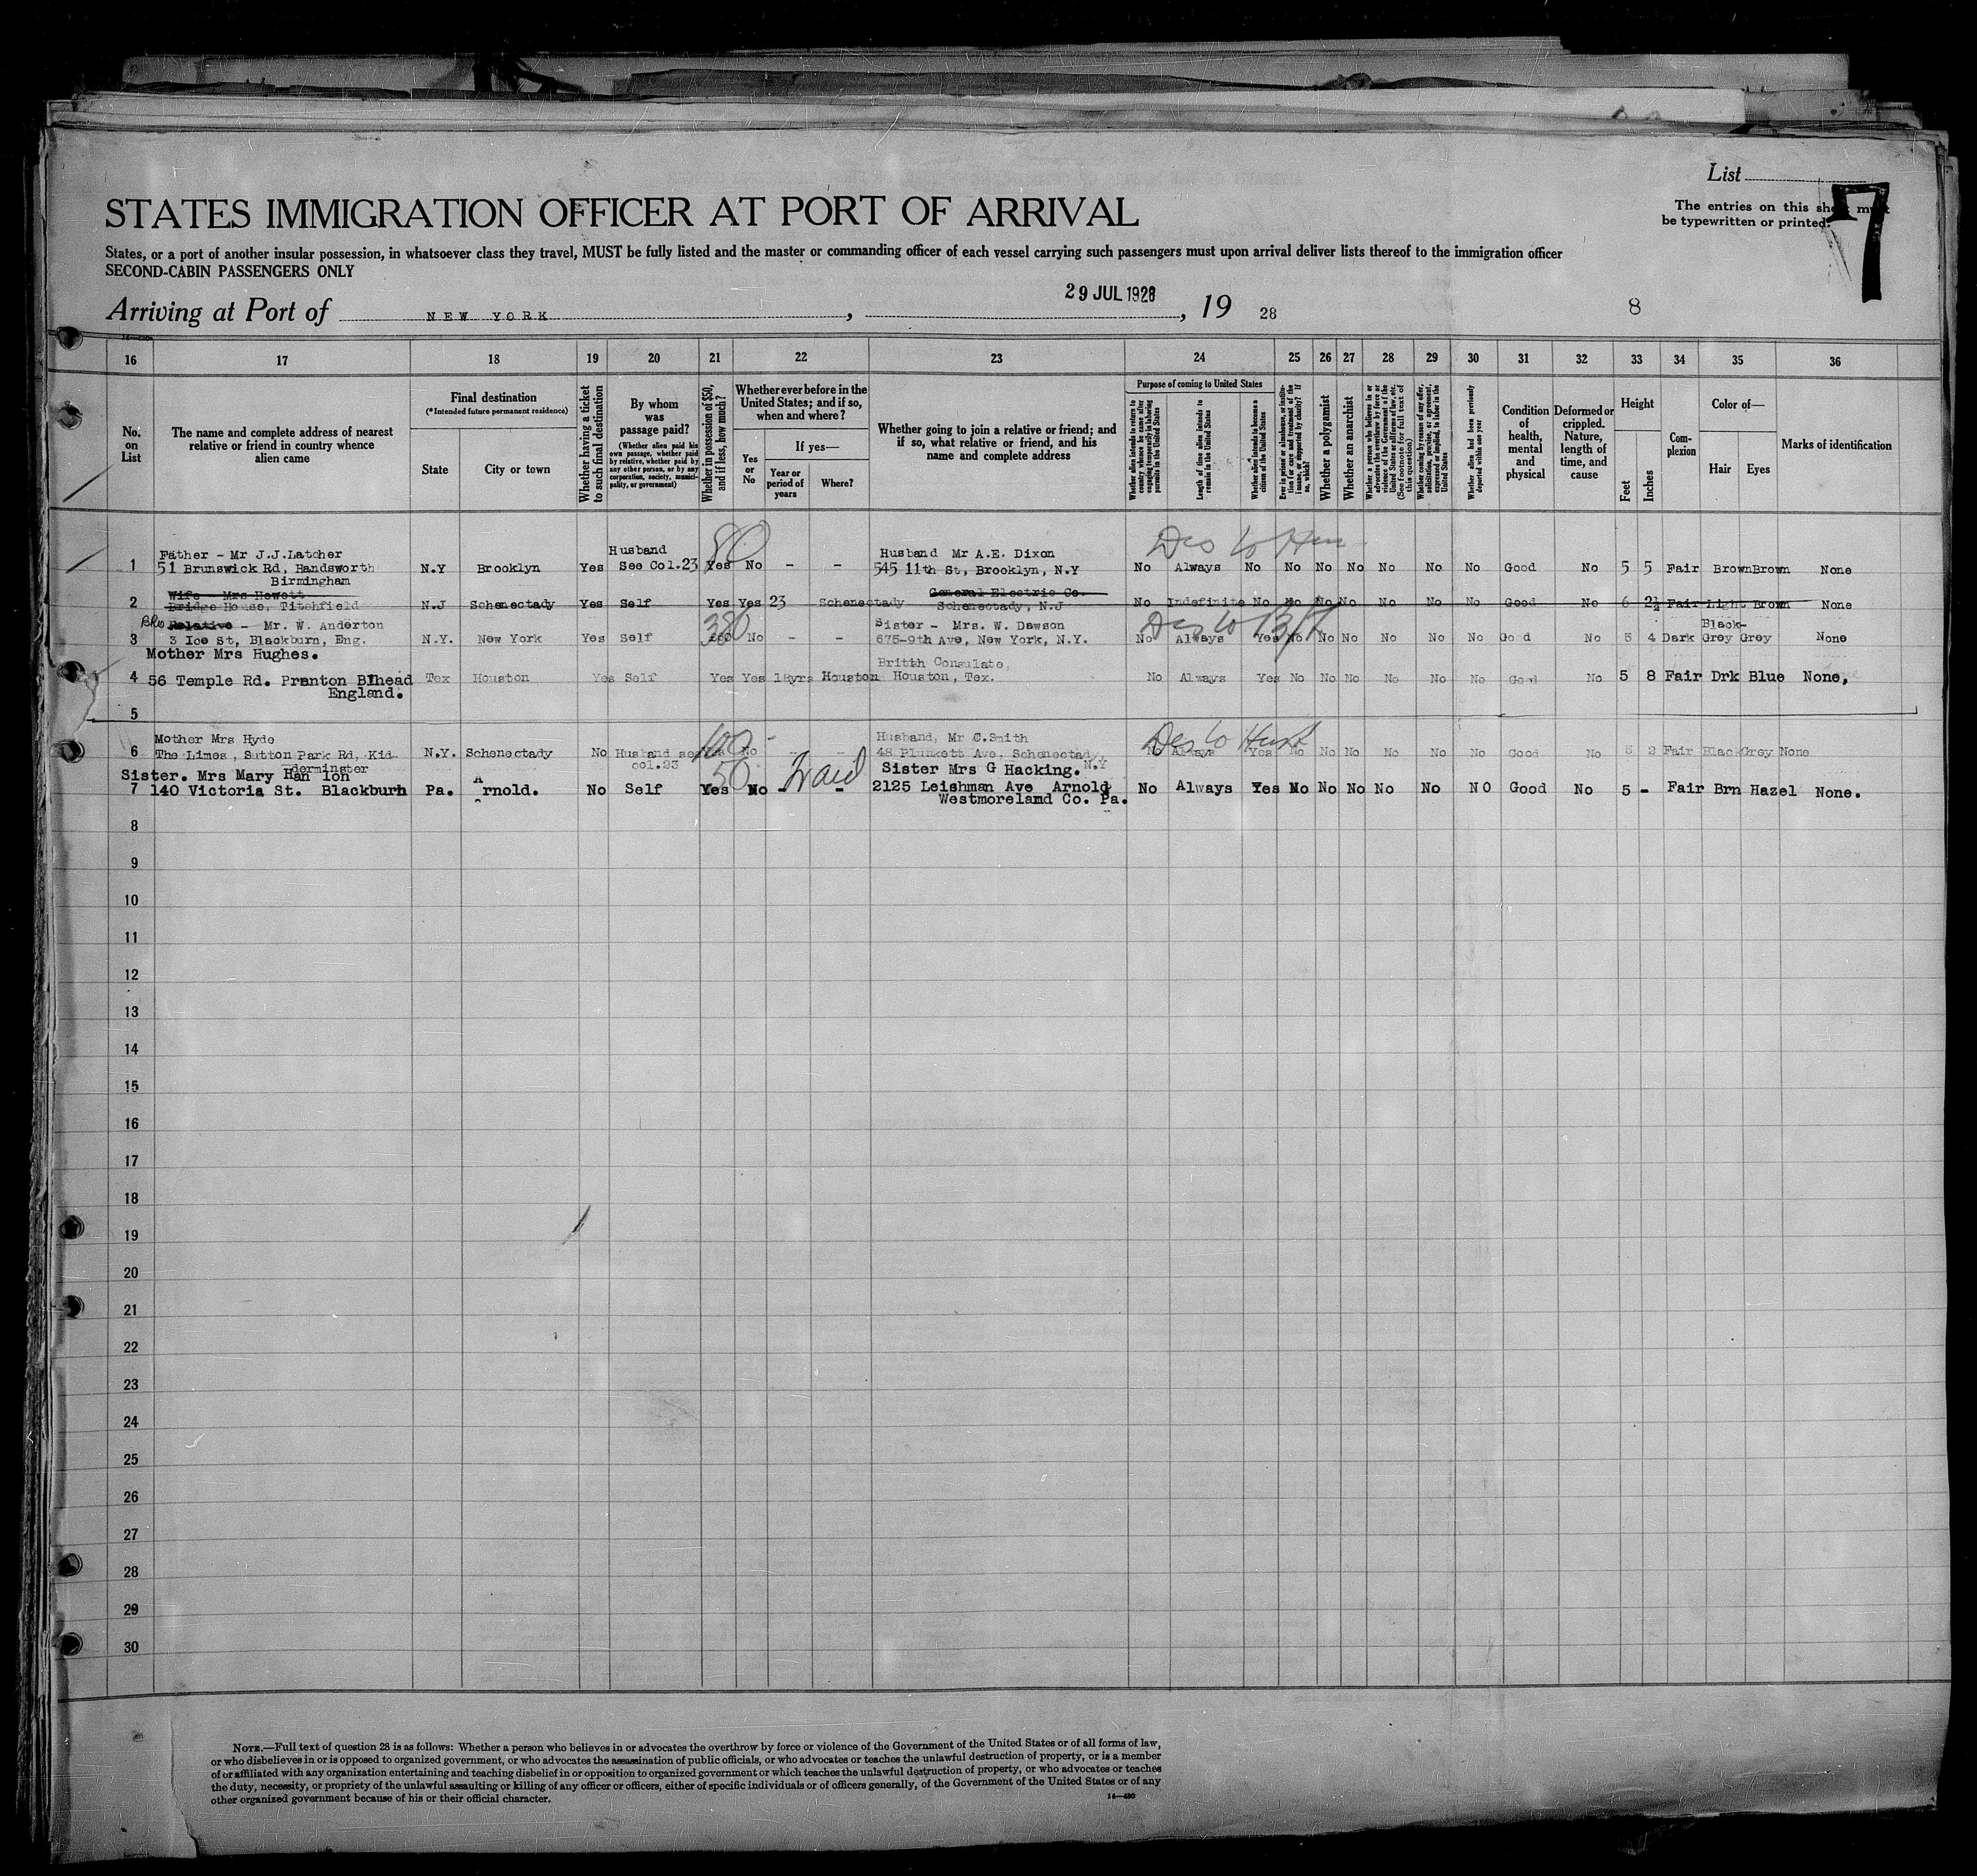 List
7
The entries on this sheet must
be typewritten or printed.
STATES IMMIGRATION OFFICER AT PORT OF ARRIVAL
States, or a port of another insular possession, in whatsoever class they travel, MUST be fully listed and the master or commanding officer of each vessel carrying such passengers must upon arrival deliver lists thereof to the immigration officer
SECOND-CABIN PASSENGERS ONLY
Arriving at Port of NEW YORK, 29 JUL 1928, 19 28
8
14—430
16 17 18 19 20 21 22 23 24 25 26 27 28 29 30 31 32 33 34 35 36
No. on List
The name and complete address of nearest relative or friend in country whence alien came
Final destination
(*Intended future permanent residence)
State
City or town
Whether having a ticket to such final destination
By whom was passage paid?
(Whether alien paid his own passage, whether paid by relative, whether paid by any other person, or by any corporation, society, municipality, or government)
Whether in possession of $50, and if less, how much?
Whether ever before in the United States; and if so, when and where?
Yes or No
If yes—
Year or period of years
Where?
Whether going to join a relative or friend; and if so, what relative or friend, and his name and complete address
Purpose of coming to United States
Whether alien intends to return to country whence he came after engaging temporarily in laboring pursuits in the United States
Length of time alien intends to remain in the United States
Whether alien intends to become a citizen of the United States
Ever in prison or almshouse, or institution for care and treatment of the insane, or supported by charity? If so, which?
Whether a polygamist
Whether an anarchist
Whether a person who believes in or advocates the overthrow by force or violence of the Government of the United States or all forms of law, etc. (See footnote for full text of this question)
Whether coming by reason of any offer, solicitation, promise, or agreement, expressed or implied, to labor in the United States
Whether alien had been previously deported within one year
Condition of health, mental and physical
Deformed or crippled. Nature, length of time, and cause
Height
Feet
Inches
Complexion
Color of—
Hair
Eyes
Marks of identification
Father - Mr J.J.Latcher
1 51 Brunswick Rd, Handsworth N.Y Brooklyn Yes Husband See Col.23 Yes 80 No - - Husband Mr A.E. Dixon 545 11th St, Brooklyn, N.Y No Always No No No No No No No Good No 5 5 Fair Brown Brown None
Birmingham
Wife - Mrs Howett
2 Bridge House, Titchfield N.J Schenectady Yes Self Yes Yes 23 Schenectady General Electric Co. Schenectady, N.J No Indefinite No No No No No No No Good No 6 2½ Fair Light Brown None
Relative - Mr. W. Anderton
3 3 Ice St, Blackburn, Eng. N.Y. New York Yes Self 380 No - - Sister - Mrs. W. Dawson 675-9th Ave, New York, N.Y. No Always Yes No No No No No No Good No 5 4 Dark Black-Grey Grey None
Mother Mrs Hughes.
4 56 Temple Rd. Prenton B'head Tex Houston Yes Self Yes Yes 18yrs Houston Britih Consulate, Houston, Tex. No Always Yes No No No No No No Good No 5 8 Fair Drk Blue None,
England.
5
Mother Mrs Hyde
6 The Limes, Sutton Park Rd, Kid- N.Y. Schenectady No Husband see col.23 100 No - - Husband, Mr C.Smith 48 Plunkett Ave, Schenectady, N.Y No Always Yes No No No No No No Good No 5 2 Fair Blac Grey None
derminster
Sister. Mrs Mary Han lon
7 140 Victoria St. Blackburn Pa. Arnold. No Self Yes 50 No - - Sister Mrs G Hacking. 2125 Leishman Ave Arnold Westmoreland Co. Pa. No Always Yes No No No No No NO Good No 5 - Fair Brn Hazel None.
8
9
10
11
12
13
14
15
16
17
18
19
20
21
22
23
24
25
26
27
28
29
30
NOTE.—Full text of question 28 is as follows: Whether a person who believes in or advocates the overthrow by force or violence of the Government of the United States or of all forms of law,
or who disbelieves in or is opposed to organized government, or who advocates the assassination of public officials, or who advocates or teaches the unlawful destruction of property, or is a member
of or affiliated with any organization entertaining and teaching disbelief in or opposition to organized government or which teaches the unlawful destruction of property, or who advocates or teaches
the duty, necessity, or propriety of the unlawful assaulting or killing of any officer or officers, either of specific individuals or of officers generally, of the Government of the United States or of any
other organized government because of his or their official character.
14—430